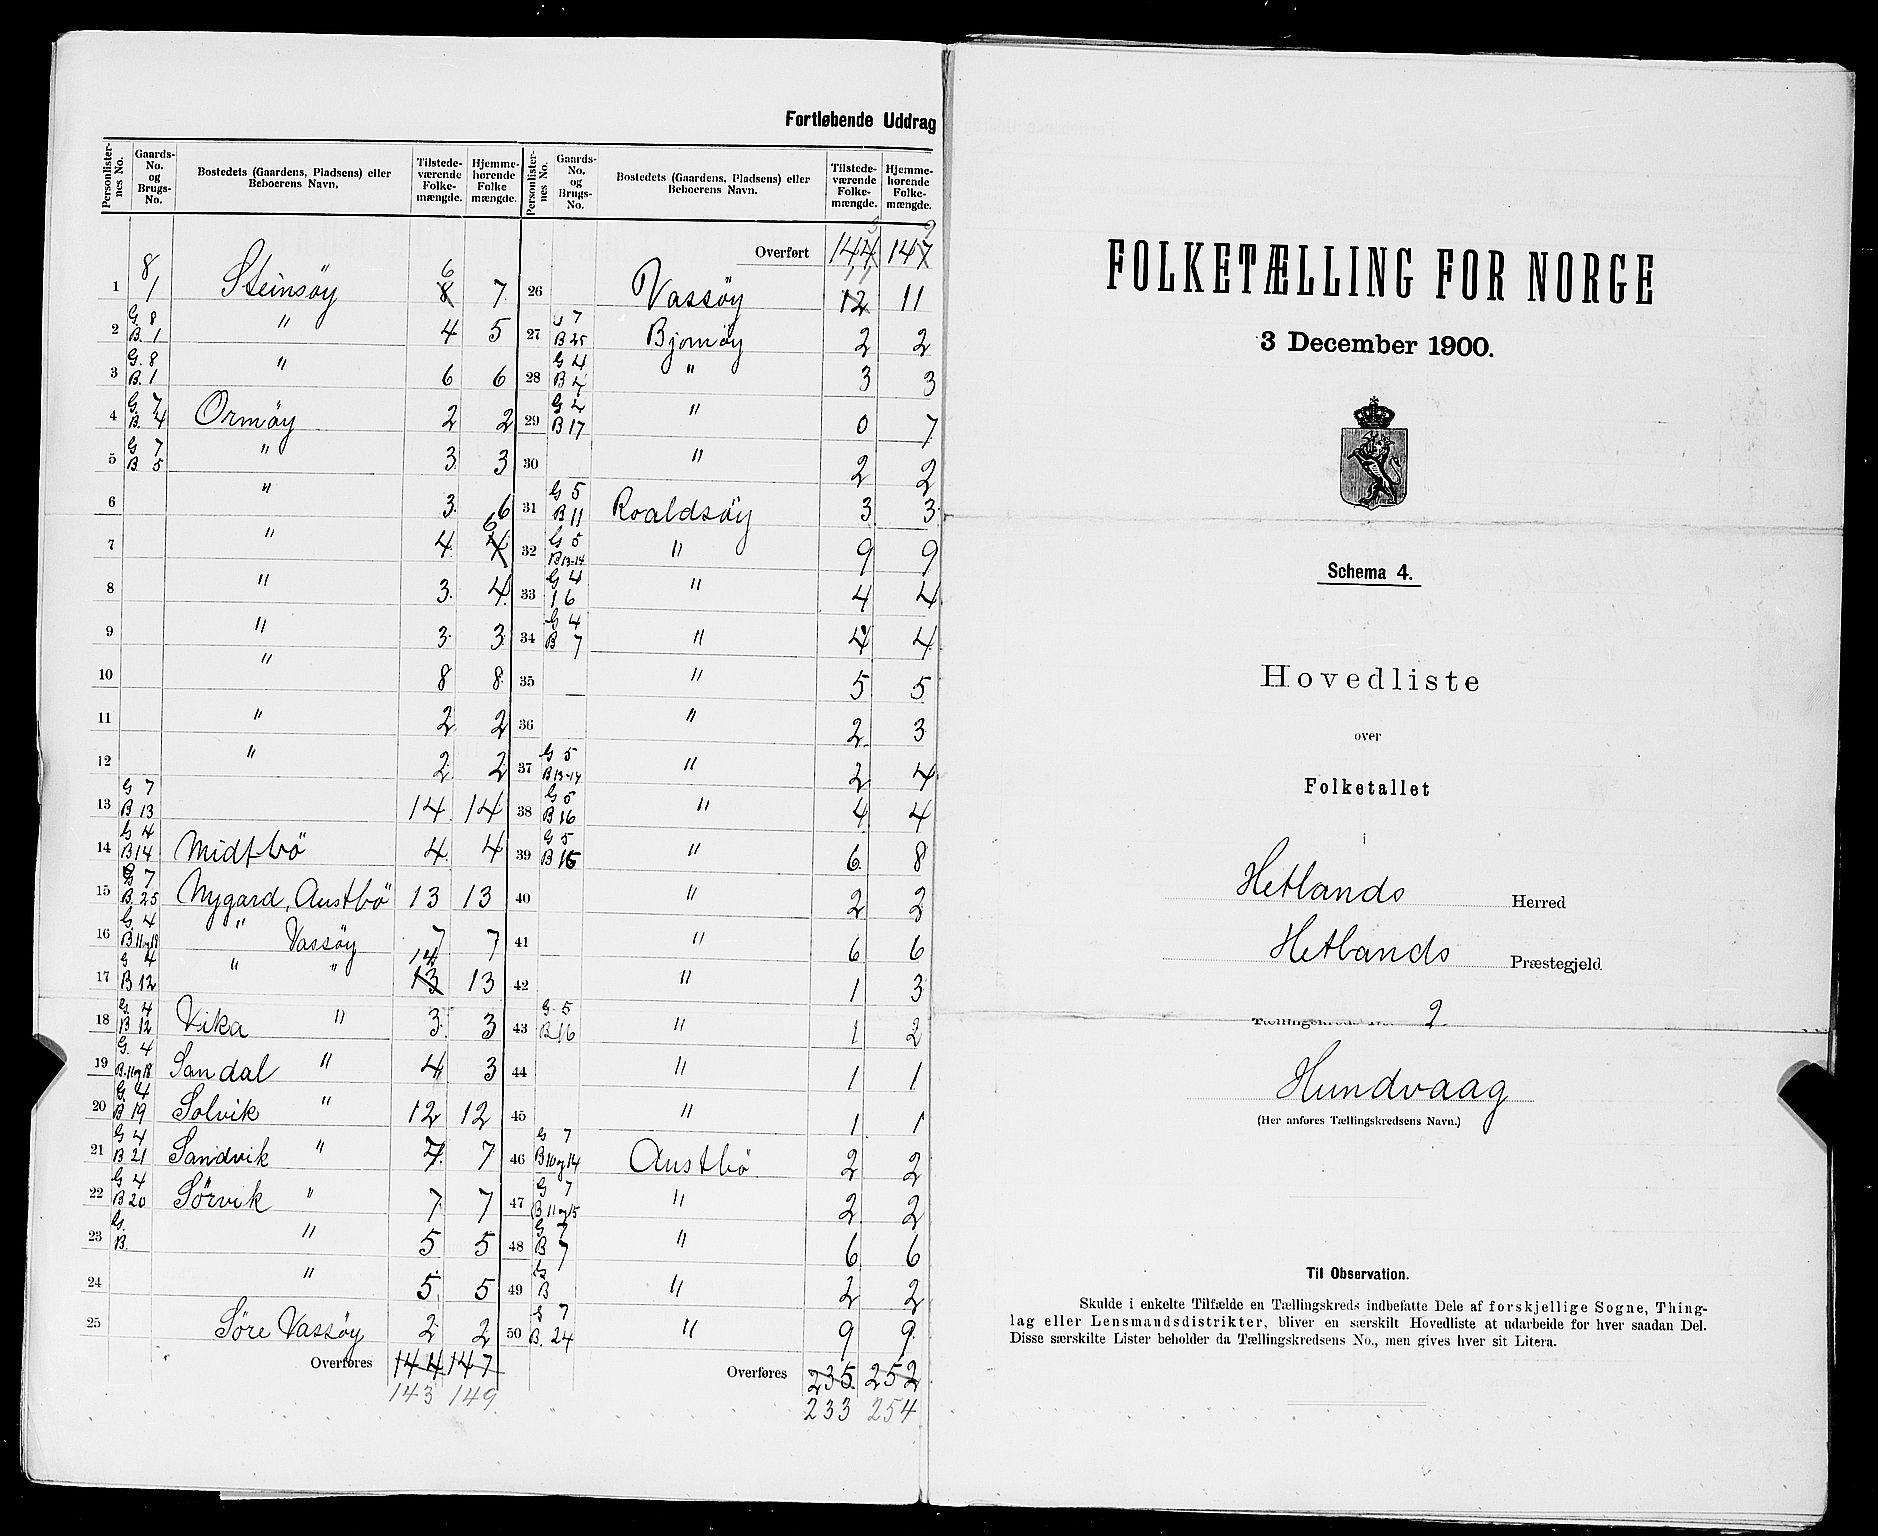 Fortløbende Uddrag
Personlister-nes No. | Gaards-No. og Brugs-No. | Bostedets (Gaardens, Pladsens) eller Beboerens Navn. | Tilstede-værende Folke-mængde. | Hjemme-hørende Folke mængde.
1 | 8 1 | Steinsöy | 8 6 | 7
2 | G. 8 B. 1 | " | 4 | 5
3 | G. 8 B. 1 | " | 6 | 6
4 | G. 7 B. 4 | Ormöy | 2 | 2
5 | G 7 B. 5 | " | 3 | 3
6 | " | 3 | 6
7 | " | 4 | 4 6
8 | " | 3 | 4
9 | " | 3 | 3
10 | " | 8 | 8
11 | " | 2 | 2
12 | " | 2 | 2
13 | G 7 B 13 | 14 | 14
14 | G 4 B 14 | Midtbö | 4 | 4
15 | G 7 B. 25 | Nygard, Austbö | 13 | 13
16 | G. 4 B 11 og 18 | " Vassöy | 7 | 7
17 | G 4 B 12 | " " | 13 14 | 13
18 | G. 4 B 12 | Vika " | 3 | 3
19 | G. 4 B. 11 og 18 | Sandal " | 4 | 3
20 | G. 4 B 19 | Solvik " | 12 | 12
21 | G 4 B 21 | Sandvik " | 7 | 7
22 | G 4 B 20 | Sörvik " | 7 | 7
23 | G. B. | " | 5 | 5
24 | " | 5 | 5
25 | Söre Vassöy | 2 | 2
Overføres 144 147
143 149
Personlister-nes No. | Gaards-No. og Brugs-No. | Bostedets (Gaardens, Pladsens) eller Beboerens Navn. | Tilstede-værende Folke-mængde. | Hjemme-hørende Folke-mængde.
Overført 144 3 147 9
26 | Vassöy | 12 11 | 11
27 | G 7 B 25 | Bjornöy | 2 | 2
28 | G 4 B 4 | " | 3 | 3
29 | G 4 B 17 | " | 0 | 7
30 | " | 2 | 2
31 | G 5 B 11 | Roaldsöy | 3 | 3
32 | G 5 B 13-14 | " | 9 | 9
33 | G 4 16 | " | 4 | 4
34 | G 4 B 7 | " | 4 | 4
35 | " | 5 | 5
36 | " | 2 | 3
37 | G 5 B 13-14 | " | 2 | 4
38 | G 5 B 16 | " | 4 | 4
39 | G 5 B 16 | " | 6 | 8
40 | " | 2 | 2
41 | " | 6 | 6
42 | " | 1 | 3
43 | G 5 B 16 | " | 1 | 2
44 | " | 1 | 1
45 | " | 1 | 1
46 | G 7 B 10 og 14 | Austbö | 2 | 2
47 | G 7 B 11 og 15 | " | 2 | 2
48 | G 7 B 7 | " | 6 | 6
49 | G B | " | 2 | 2
50 | G 7 B. 24 | " | 9 | 9
Overføres 235 252
233 254
FOLKETÆLLING FOR NORGE
3 December 1900.
Schema 4.
Hovedliste
over
Folketallet
i
Hetlands Herred
Hetlands Præstegjeld
Tællingskreds No. 2.
Hundvaag
(Her anføres Tællingskredsens Navn.)
Til Observation.
Skulde i enkelte Tilfælde en Tællingskreds indbefatte Dele af forskjellige Sogne, Thing-
lag eller Lensmandsdistrikter, bliver en særskilt Hovedliste at udarbeide for hver saadan Del.
Disse særskilte Lister beholder da Tællingskredsens No., men gives hver sit Litera.